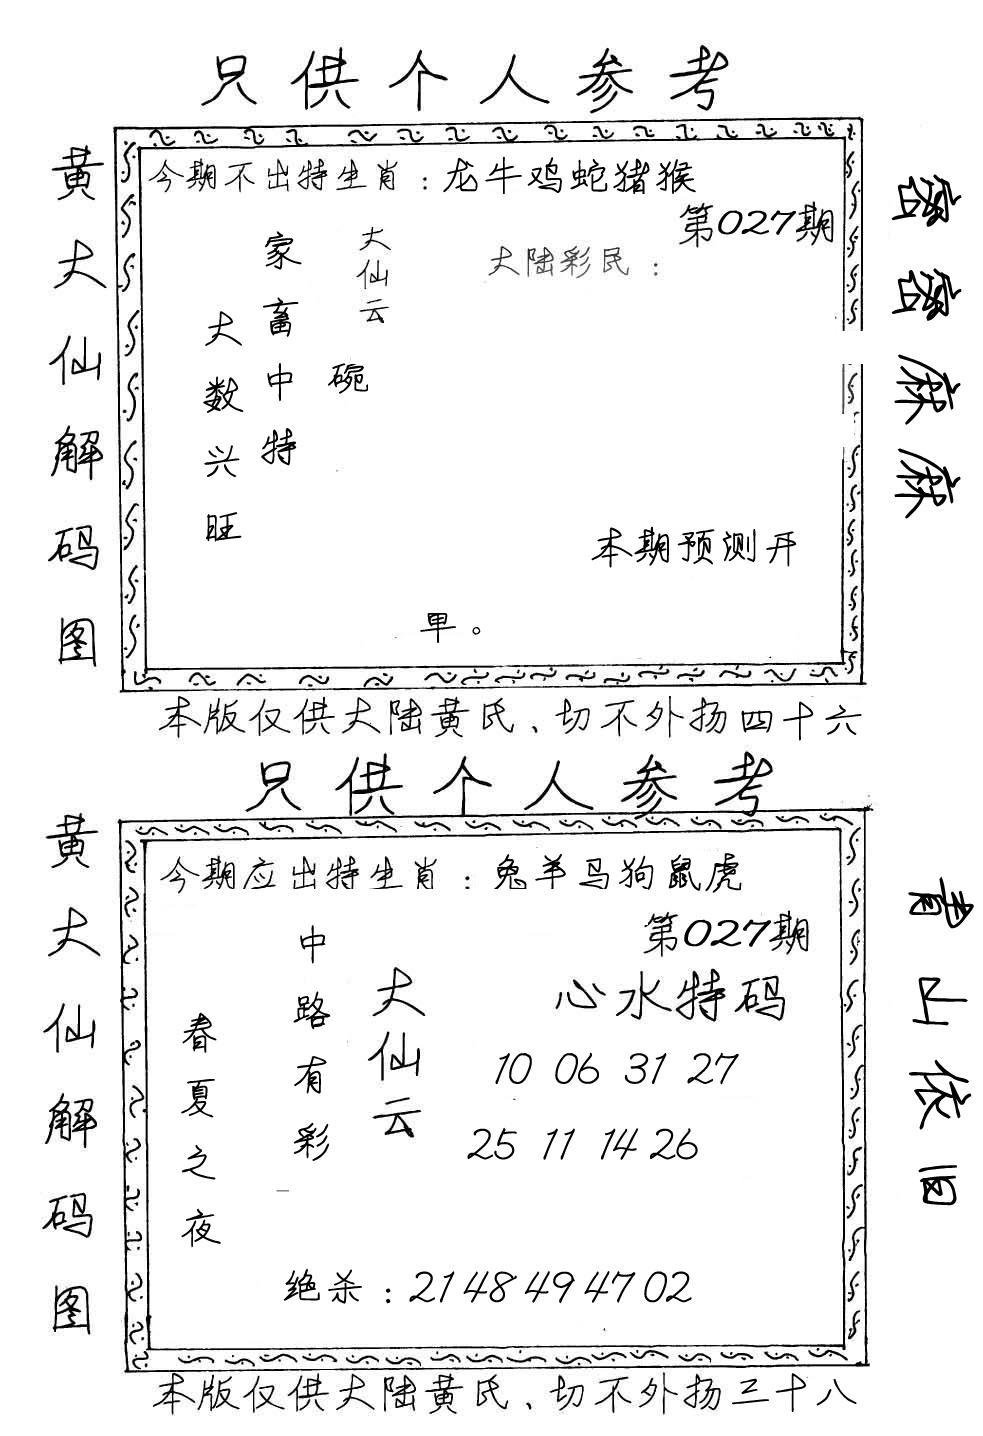 只供个人参考
黄大仙解码图
今期不出特生肖：龙牛鸡蛇猪猴
第027期
大陆彩民：
大仙云
家畜中特
大数兴旺
碗
本期预测开
甲。
密密麻麻
本版仅供大陆黄氏、切不外扬四十六
只供个人参考
黄大仙解码图
今期应出特生肖：兔羊马狗鼠虎
第027期
心水特码
10 06 31 27
25 11 14 26
大仙云
中路有彩
春夏之夜
绝杀：21 48 49 47 02
青山依旧
本版仅供大陆黄氏、切不外扬三十八